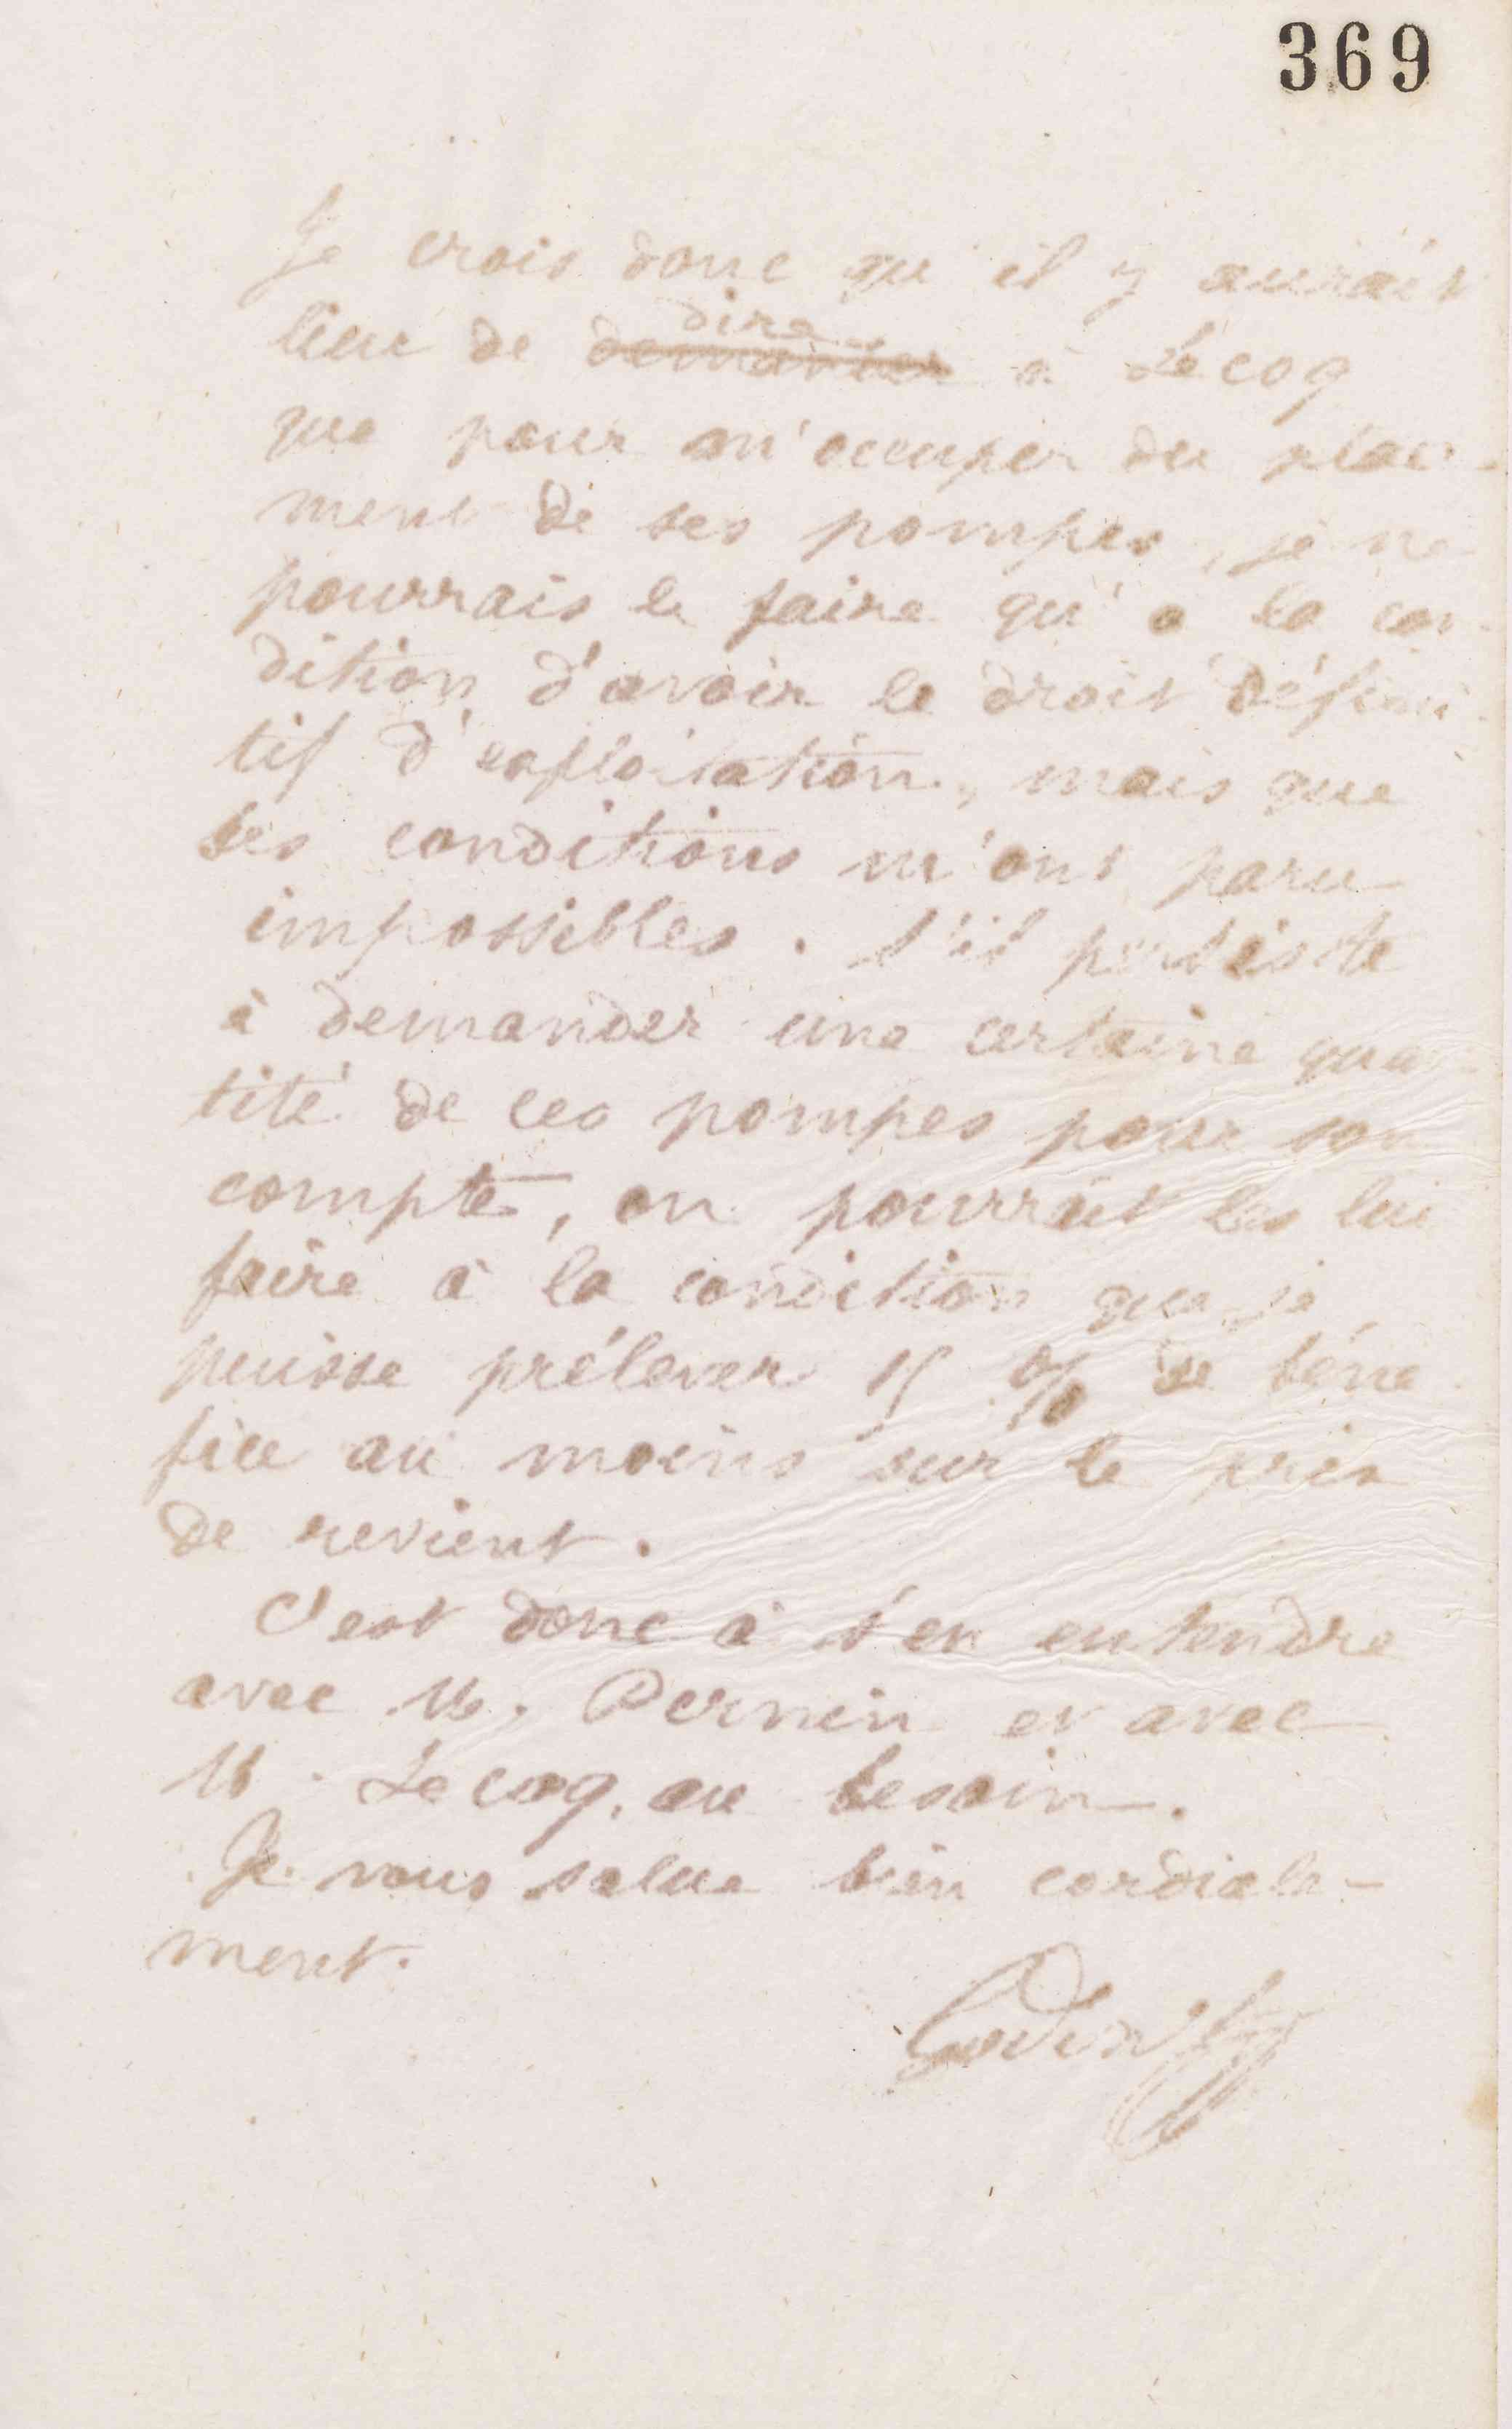 369
Je crois donc qu'il y aurait
dire
lieu de demander à Lecoq
que pour m'occuper du place-
ment de ses pompes, je ne
pourrais le faire qu'à la con-
dition d'avoir le droit défini-
tif d'exploitation, mais que
ses conditions m'ont paru
impossibles. S'il persiste
à demander une certaine quan-
tité de ces pompes pour son
compte, on pourrait les lui
faire à la condition que je
puisse prélever 15 % de béné-
fice au moins sur le prix
de revient.
C'est donc à s'en entendre
avec M. Pernin et avec
M. Lecoq, au besoin.
Je vous salue bien cordiale-
ment.
Godin